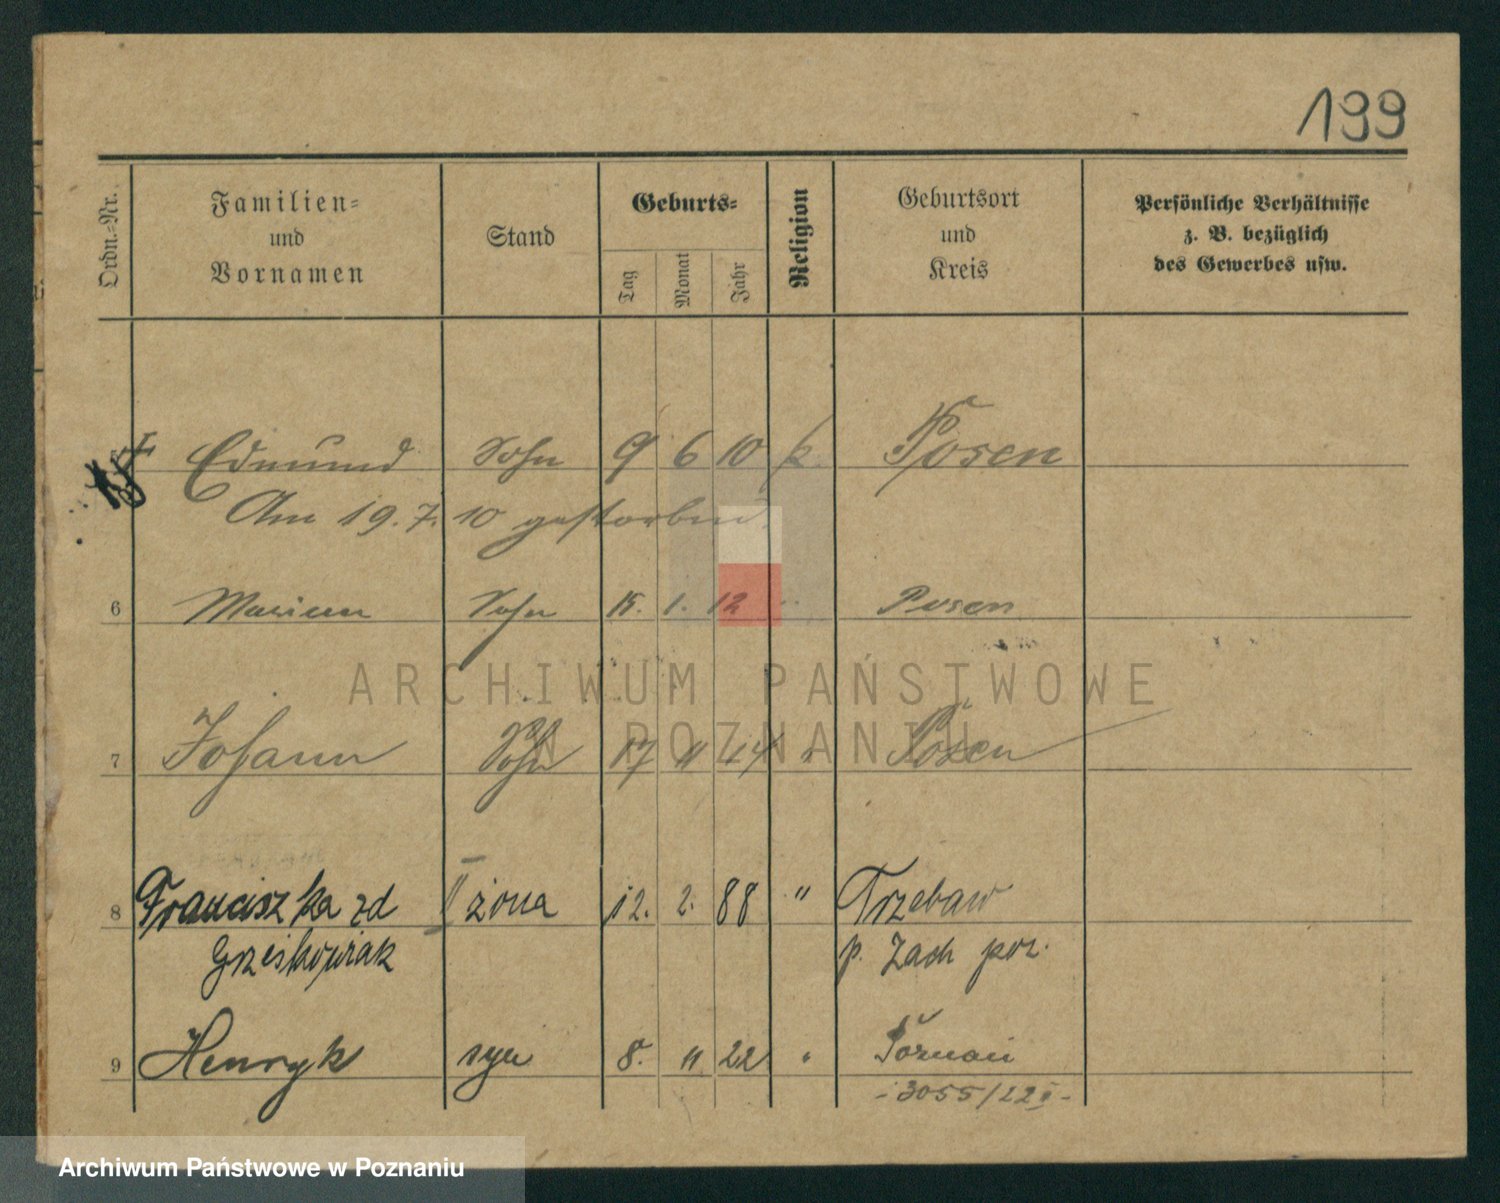 199
Ordn.=Nr.
Familien=
und
Vornamen
Stand
Geburts=
Tag
Monat
Jahr
Religion
Geburtsort
und
Kreis
Persönliche Verhältnisse
z. B. bezüglich
des Gewerbes usw.
Edmund Sohn 9 6 10 k. Posen
Am 19. 7. 10 gestorben.
6 Marian Sohn 15. 1. 12 Posen
ARCHIWUM PAŃSTWOWE
W POZNANIU
7 Johann Sohn 17 11 14 " Posen
8 Franciszka zd II żona 12. 2. 88 " Trzebaw
Grześkowiak p. Zach poz.
9 Henryk syn 8. 11 22 " Poznań
- 3055/22 -
Archiwum Państwowe w Poznaniu